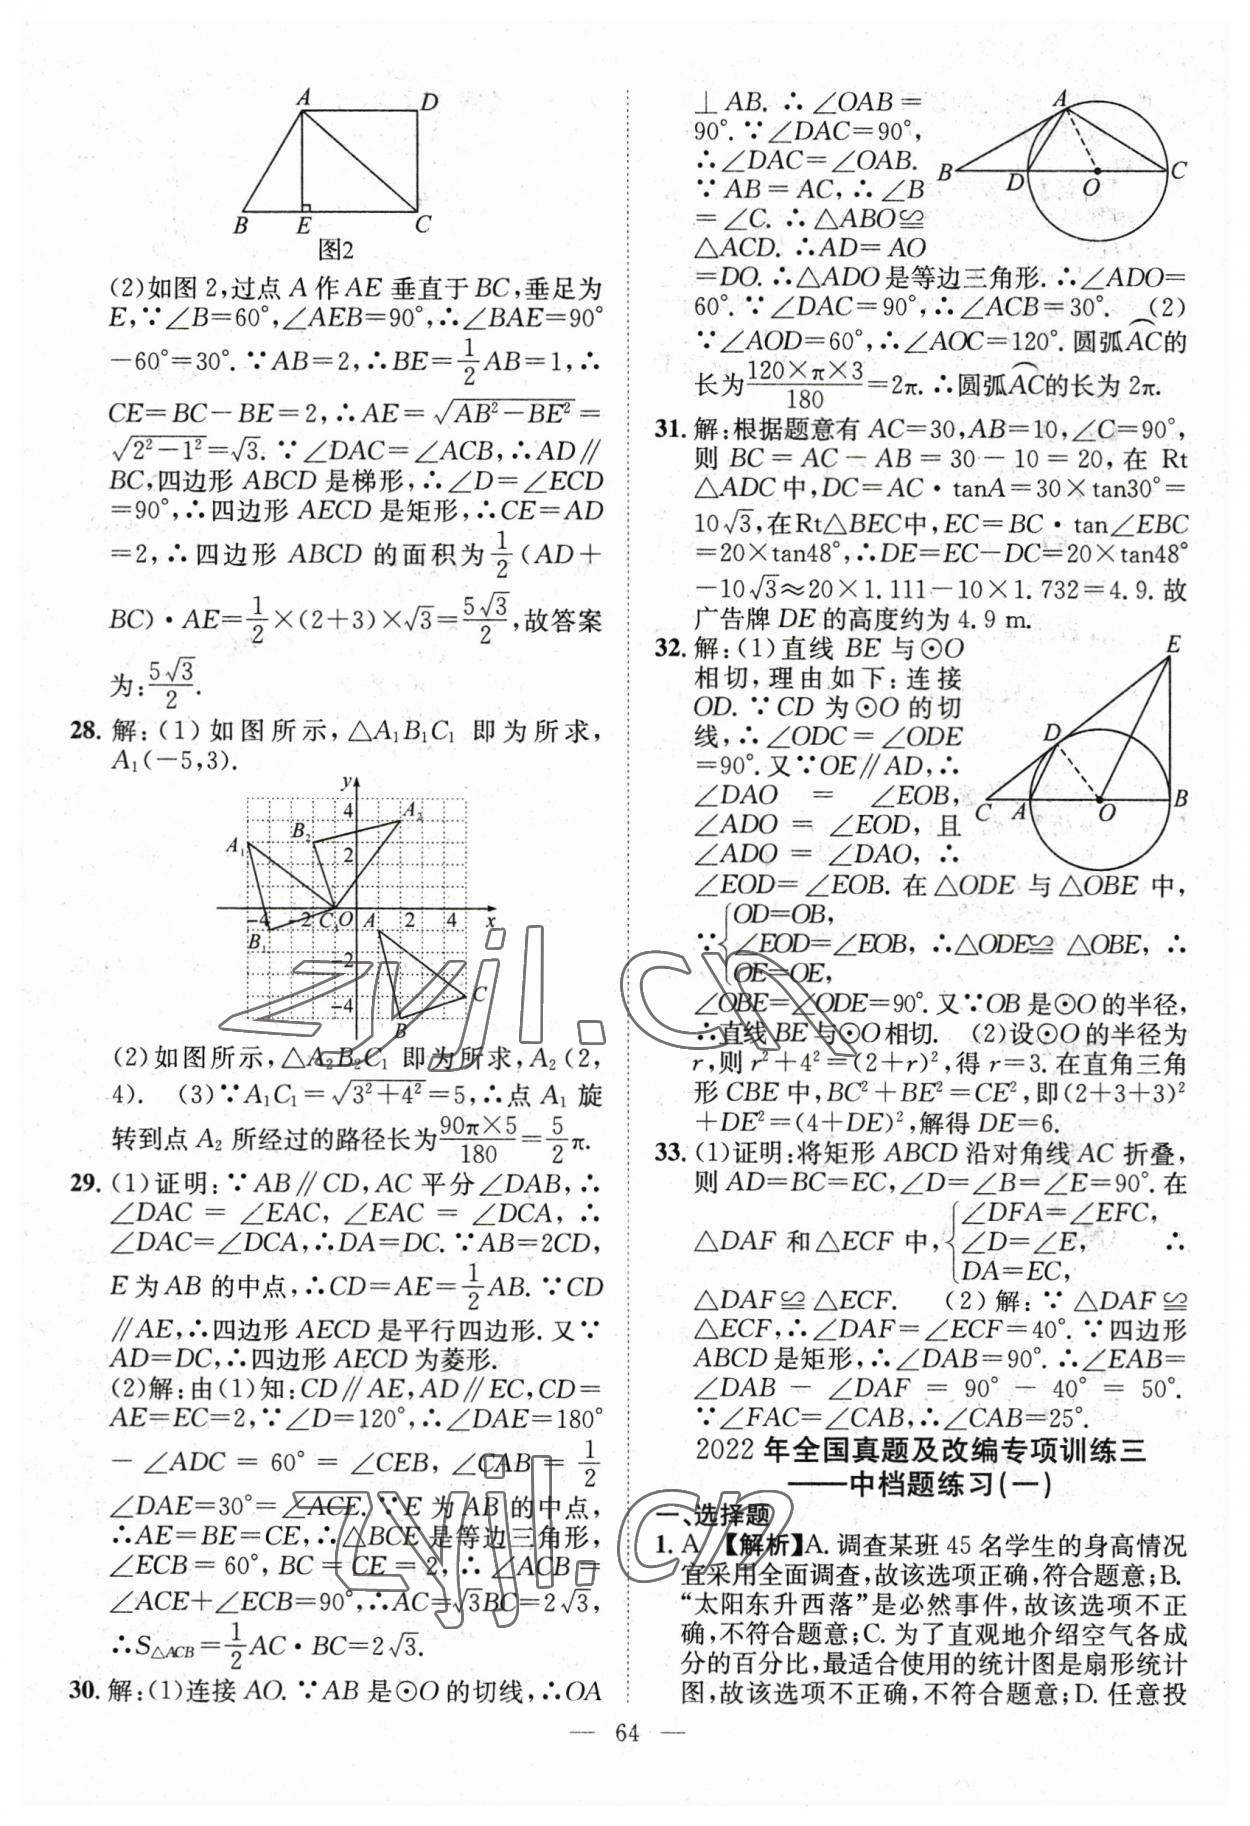 A D
B E C
图2
(2)如图2,过点A作AE垂直于BC,垂足为
E,∵∠B=60°,∠AEB=90°,∴∠BAE=90°
-60°=30°.∵AB=2,∴BE=1/2AB=1,∴
CE=BC-BE=2,∴AE=√(AB²-BE²)=
√(2²-1²)=√3.∵∠DAC=∠ACB,∴AD∥
BC,四边形ABCD是梯形,∴∠D=∠ECD
=90°,∴四边形AECD是矩形,∴CE=AD
=2,∴四边形ABCD的面积为1/2(AD+
BC)·AE=1/2×(2+3)×√3=5√3/2,故答案
为:5√3/2.
28.解:(1)如图所示,△A₁B₁C₁即为所求,
A₁(-5,3).
y
4 A₂
B₂
A₁ 2
-4 -2 C₁ O A 2 4 x
B₁
-2
-4 C
B
(2)如图所示,△A₂B₂C₁即为所求,A₂(2,
4). (3)∵A₁C₁=√(3²+4²)=5,∴点A₁旋
转到点A₂所经过的路径长为90π×5/180=5/2π.
29.(1)证明:∵AB∥CD,AC平分∠DAB,∴
∠DAC=∠EAC,∠EAC=∠DCA,∴
∠DAC=∠DCA,∴DA=DC.∵AB=2CD,
E为AB的中点,∴CD=AE=1/2AB.∵CD
∥AE,∴四边形AECD是平行四边形.又∵
AD=DC,∴四边形AECD为菱形.
(2)解:由(1)知:CD∥AE,AD∥EC,CD=
AE=EC=2,∵∠D=120°,∴∠DAE=180°
-∠ADC=60°=∠CEB,∠CAB=1/2
∠DAE=30°=∠ACE.∵E为AB的中点,
∴AE=BE=CE,∴△BCE是等边三角形,
∠ECB=60°,BC=CE=2,∴∠ACB=
∠ACE+∠ECB=90°,∴AC=√3BC=2√3,
∴S△ACB=1/2AC·BC=2√3.
30.解:(1)连接AO.∵AB是⊙O的切线,∴OA
⊥AB.∴∠OAB=
90°.∵∠DAC=90°,
∴∠DAC=∠OAB.
∵AB=AC,∴∠B
=∠C.∴△ABO≌
△ACD.∴AD=AO
A
B D O C
=DO.∴△ADO是等边三角形.∴∠ADO=
60°.∵∠DAC=90°,∴∠ACB=30°. (2)
∵∠AOD=60°,∴∠AOC=120°.圆弧AC的
长为120×π×3/180=2π.∴圆弧AC的长为2π.
31.解:根据题意有AC=30,AB=10,∠C=90°,
则BC=AC-AB=30-10=20,在Rt
△ADC中,DC=AC·tanA=30×tan30°=
10√3,在Rt△BEC中,EC=BC·tan∠EBC
=20×tan48°,∴DE=EC-DC=20×tan48°
-10√3≈20×1.111-10×1.732=4.9.故
广告牌DE的高度约为4.9 m.
32.解:(1)直线BE与⊙O
相切,理由如下:连接
OD.∵CD为⊙O的切
线,∴∠ODC=∠ODE
=90°.又∵OE∥AD,∴
∠DAO=∠EOB,
∠ADO=∠EOD,且
∠ADO=∠DAO,∴
E
D
C A O B
∠EOD=∠EOB.在△ODE与△OBE中,
OD=OB,
∵{∠EOD=∠EOB,∴△ODE≌△OBE,∴
OE=OE,
∠OBE=∠ODE=90°.又∵OB是⊙O的半径,
∴直线BE与⊙O相切. (2)设⊙O的半径为
r,则r²+4²=(2+r)²,得r=3.在直角三角
形CBE中,BC²+BE²=CE²,即(2+3+3)²
+DE²=(4+DE)²,解得DE=6.
33.(1)证明:将矩形ABCD沿对角线AC折叠,
则AD=BC=EC,∠D=∠B=∠E=90°.在
∠DFA=∠EFC,
△DAF和△ECF中,{∠D=∠E, ∴
DA=EC,
△DAF≌△ECF. (2)解:∵△DAF≌
△ECF,∴∠DAF=∠ECF=40°.∵四边形
ABCD是矩形,∴∠DAB=90°.∴∠EAB=
∠DAB-∠DAF=90°-40°=50°.
∵∠FAC=∠CAB,∴∠CAB=25°.
2022年全国真题及改编专项训练三
——中档题练习(一)
一、选择题
1. A 【解析】A.调查某班45名学生的身高情况
宜采用全面调查,故该选项正确,符合题意;B.
“太阳东升西落”是必然事件,故该选项不正
确,不符合题意;C.为了直观地介绍空气各成
分的百分比,最适合使用的统计图是扇形统计
图,故该选项不正确,不符合题意;D.任意投
— 64 —
zyjl.cn
zyjl.cn